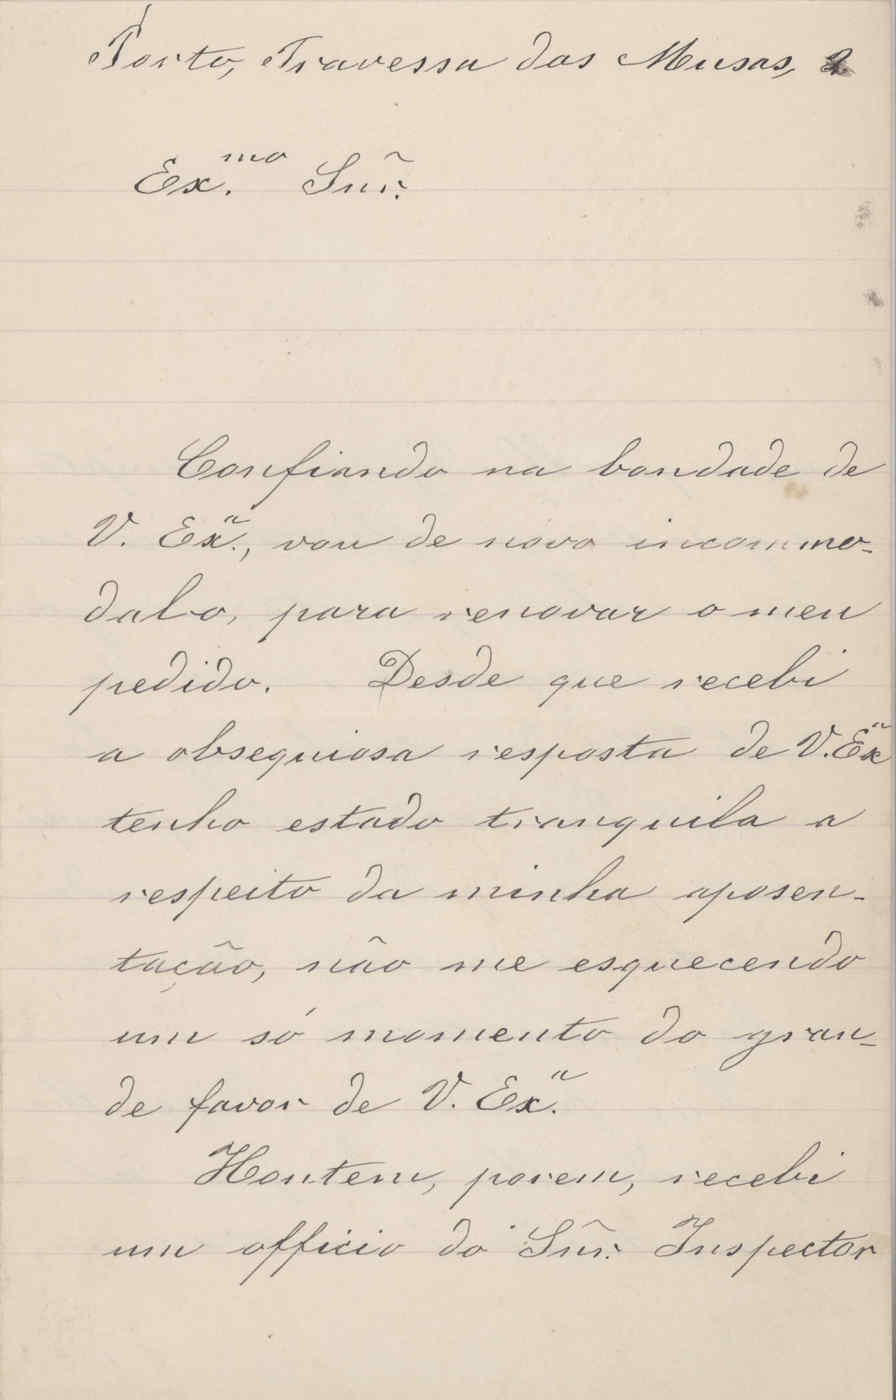 Porto, Travessa das Musas, 2
Ex.mo Snr.
Confiando na bondade de
V. Ex.a, vou de novo incommo-
dal-o, para renovar o meu
pedido. Desde que recebi
a obsequiosa resposta de V. Exa
tenho estado tranquila a
respeito da minha aposen-
tação, não me esquecendo
um só momento do gran-
de favor de V. Ex.a
Hontem, porem, recebi
um officio do Snr. Inspector